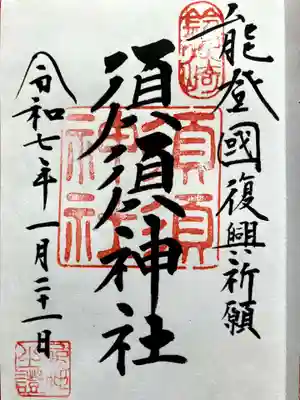 能登國復興祈願
須須神社
令和七年一月二十一日
須須
神社